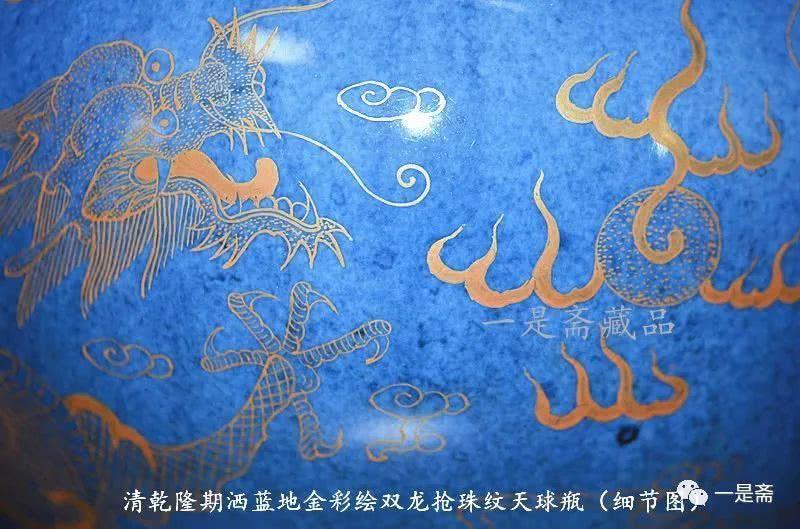 一是斋藏品
清乾隆期洒蓝地金彩绘双龙抢珠纹天球瓶（细节图）
一是斋